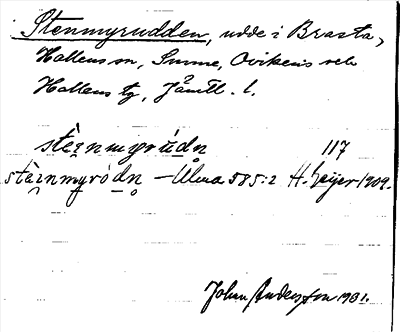 Stenmyrudden, udde i Brasta,
Hallens sn, Sunne, Ovikens och
Hallens tg, Jämtl. l.
stèi̯nmyrúdn 117
stèi̯nmyródn̥ – Ulma 585:2 H. Geijer 1909.
Johan Anderson 1931.